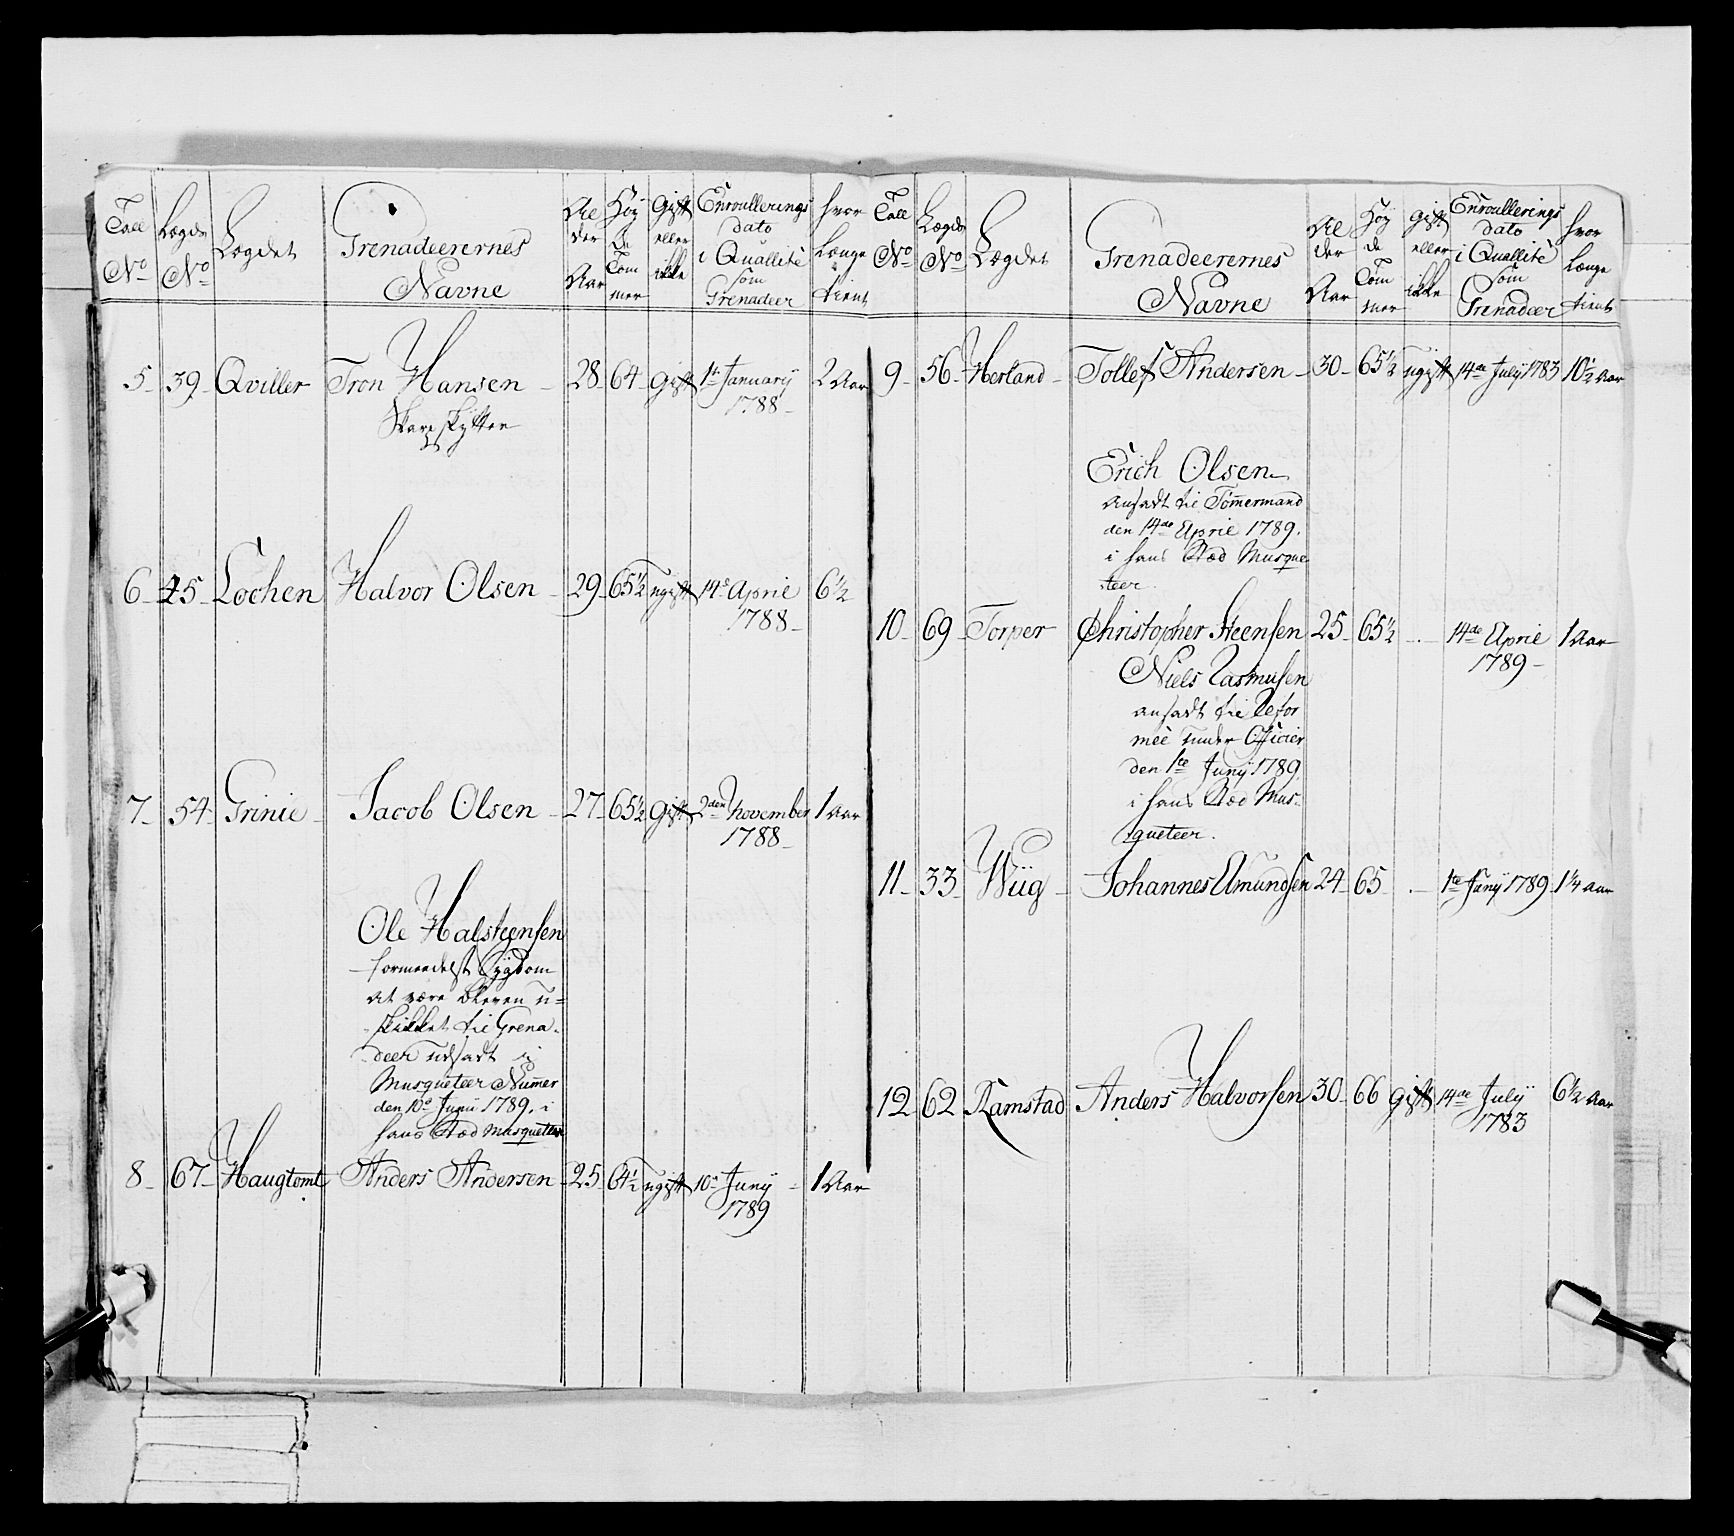 Tall No
Lægds No
Lægdet
Grenadeerernes Navne
Al der Aar
Høy de Tom mer
Gift eller ikke
Enroullerings dato i Quallité som Grenadeer
hvor Længe tient
5 39 Qviller Tron Hansen 28 64 Gift 1te January 2 Aar
Skarpskytter 1788
6 45 Lochen Halvor Olsen 29 65½ ugift 14de April 6½
1788
7 54 Grinie Jacob Olsen 27 65½ gift 2den November 1 Aar
1788
Ole Halsteensen
formeedelst Sygdom
at være bleven u=
skikket til Grena-
deer udsadt i
Musqueteer Nummer
den 10de Junii 1789. i
hans Stæd Musqueteer
8 67 Haugtomt Anders Andersen 25 64½ ugift 10de Junÿ 1 Aar
1789
Tall No
Lægds No
Lægdet
Grenadeerernes Navne
Al der Aar
Høy de Tom mer
Gift eller ikke
Enroullerings dato i Quallité som Grenadeer
hvor Længe tient
9 56 Herland Tollef Andersen 30 65½ ugift 14de July 1783 10½ Aar
Erich Olsen
ansadt til Tømmermand
den 14de April 1789.
i hans Stæd Musque
teer
10 69 Torper Christopher Steensen 25 65½ 14de April 1 Aar
1789
Niels Rasmusen
ansadt til Refor
meé under Officier
den 1te Junÿ 1789
i hans Stæd Mus-
queteer.
11 33 Wiig Johannes Amundsen 24 65 1te Junÿ 1789 1¼ Aar
12 62 Ramstad Anders Halvorsen 30 66 gift 14de Julÿ 6½ Aar
1783